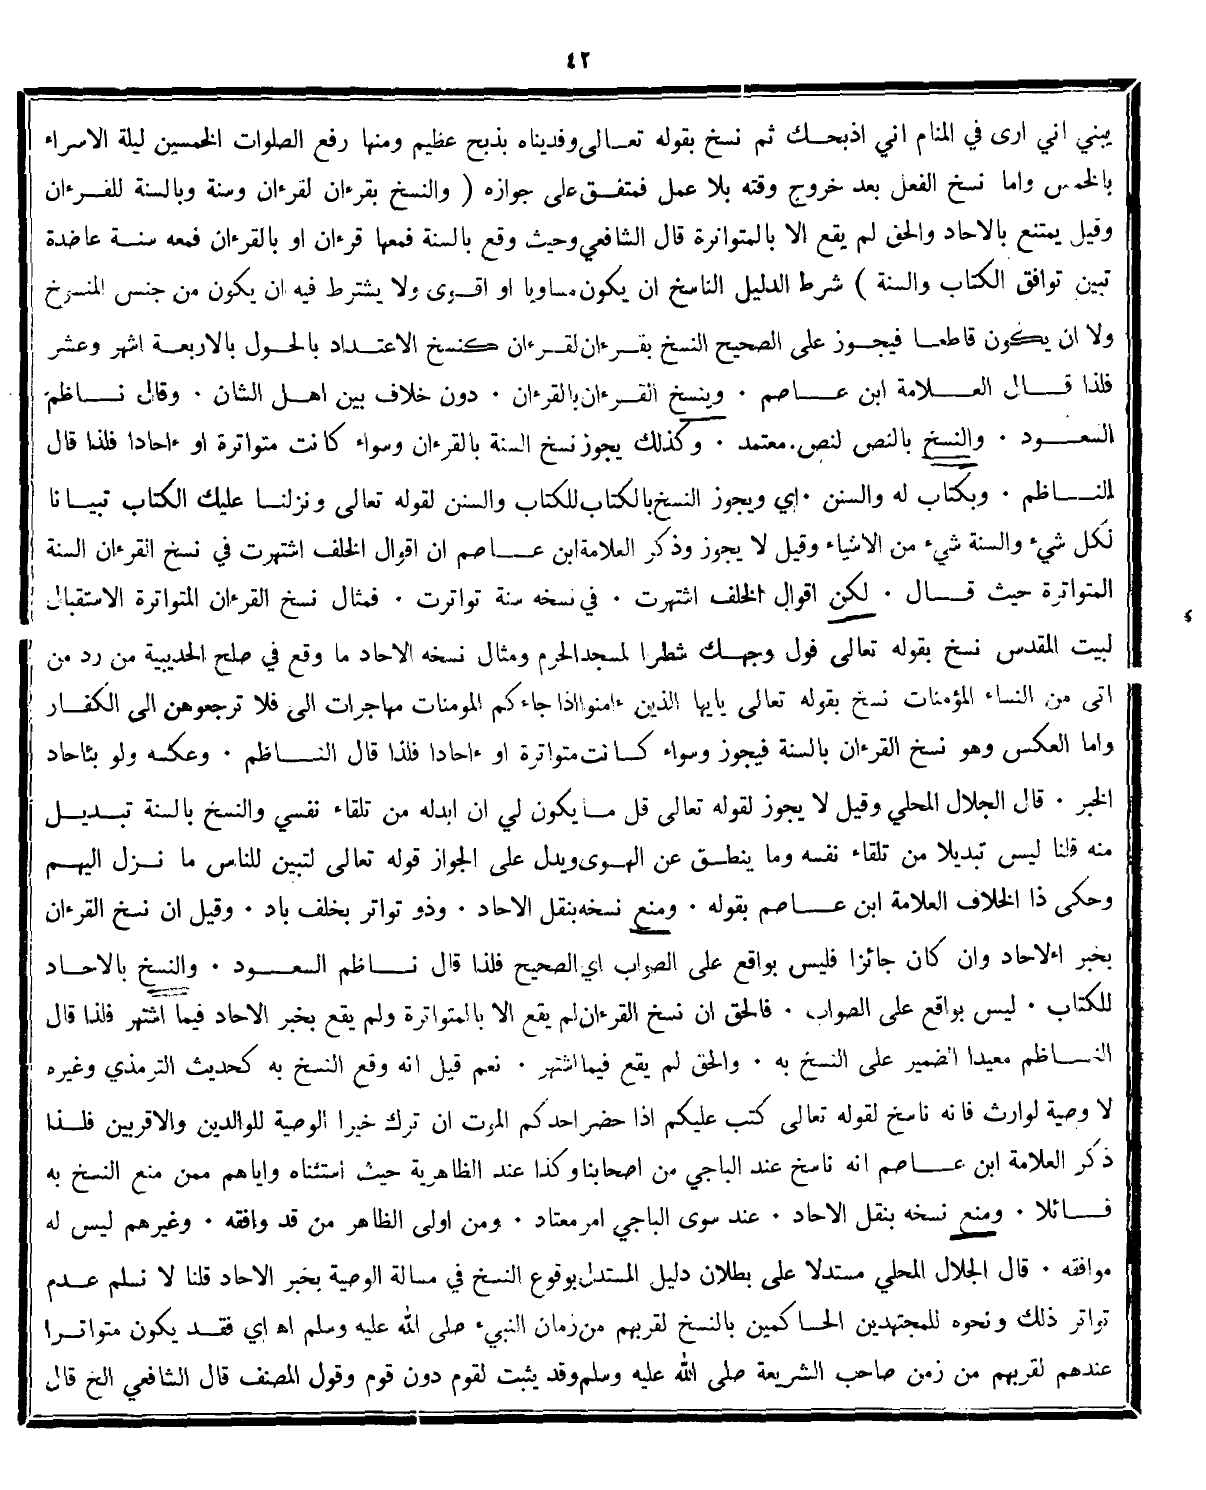 ٤٢
يبني اني ارى في المنام اني اذبحك ثم نسخ بقوله تعالى وفديناه بذبح عظيم ومنها رفع الصلوات الخمسين ليلة الاسراء
بالخمس واما نسخ الفعل بعد خروج وقته بلا عمل فمتفق على جوازه ( والنسخ بقرءان لقرءان وسنة وبالسنة للقرءان
وقيل يمتنع بالاحاد والحق لم يقع الا بالمتواترة قال الشافعي وحيث وقع بالسنة فمعها قرءان او بالقرءان فمعه سنة عاضدة
تبين توافق الكتاب والسنة ) شرط الدليل الناسخ ان يكون مساويا او اقوى ولا يشترط فيه ان يكون من جنس المنسوخ
ولا ان يكون قاطعا فيجوز على الصحيح النسخ بقرءان لقرءان كنسخ الاعتداد بالحول بالاربعة اشهر وعشر
فلذا قال العلامة ابن عاصم ٠ وينسخ القرءان بالقرءان ٠ دون خلاف بين اهل الشان ٠ وقال ناظم
السعود ٠ والنسخ بالنص لنص معتمد ٠ وكذلك يجوز نسخ السنة بالقرءان وسواء كانت متواترة او ءاحادا فلذا قال
الناظم ٠ وبكتاب له والسنن ٠ اي ويجوز النسخ بالكتاب للكتاب والسنن لقوله تعالى ونزلنا عليك الكتاب تبيانا
لكل شيء والسنة شيء من الاشياء وقيل لا يجوز وذكر العلامة ابن عاصم ان اقوال الخلف اشتهرت في نسخ القرءان السنة
المتواترة حيث قال ٠ لكن اقوال الخلف اشتهرت ٠ في نسخه سنة تواترت ٠ فمثال نسخ القرءان المتواترة الاستقبال
لبيت المقدس نسخ بقوله تعالى فول وجهك شطرا لمسجد الحرم ومثال نسخه الاحاد ما وقع في صلح الحديبية من رد من
اتى من النساء المؤمنات نسخ بقوله تعالى يايها الذين ءامنوا اذا جاءكم المومنات مهاجرات الى فلا ترجعوهن الى الكفار
واما العكس وهو نسخ القرءان بالسنة فيجوز وسواء كانت متواترة او ءاحادا فلذا قال الناظم ٠ وعكسه ولو بئاحاد
الخبر ٠ قال الجلال المحلي وقيل لا يجوز لقوله تعالى قل ما يكون لي ان ابدله من تلقاء نفسي والنسخ بالسنة تبديل
منه قلنا ليس تبديلا من تلقاء نفسه وما ينطق عن الهوى ويدل على الجواز قوله تعالى لتبين للناس ما نزل اليهم
وحكى ذا الخلاف العلامة ابن عاصم بقوله ٠ ومنع نسخه بنقل الاحاد ٠ وذو تواتر بخلف باد ٠ وقيل ان نسخ القرءان
بخبر اءلاحاد وان كان جائزا فليس بواقع على الصواب اي الصحيح فلذا قال ناظم السعود ٠ والنسخ بالاحاد
للكتاب ٠ ليس بواقع على الصواب ٠ فالحق ان نسخ القرءان لم يقع الا بالمتواترة ولم يقع بخبر الاحاد فيما اشتهر فلذا قال
الناظم معيدا الضمير على النسخ به ٠ والحق لم يقع فيما اشتهر ٠ نعم قيل انه وقع النسخ به كحديث الترمذي وغيره
لا وصية لوارث فانه ناسخ لقوله تعالى كتب عليكم اذا حضر احدكم الموت ان ترك خيرا الوصية للوالدين والاقربين فلذا
ذكر العلامة ابن عاصم انه ناسخ عند الباجي من اصحابنا وكذا عند الظاهرية حيث استثناه واياهم ممن منع النسخ به
قائلا ٠ ومنع نسخه بنقل الاحاد ٠ عند سوى الباجي امر معتاد ٠ ومن اولى الظاهر من قد وافقه ٠ وغيرهم ليس له
موافقه ٠ قال الجلال المحلي مستدلا على بطلان دليل المستدل بوقوع النسخ في مسالة الوصية بخبر الاحاد قلنا لا نسلم عدم
تواتر ذلك ونحوه للمجتهدين الحاكمين بالنسخ لقربهم من زمان النبيء صلى الله عليه وسلم اه اي فقد يكون متواترا
عندهم لقربهم من زمن صاحب الشريعة صلى الله عليه وسلم وقد يثبت لقوم دون قوم وقول المصنف قال الشافعي الخ قال